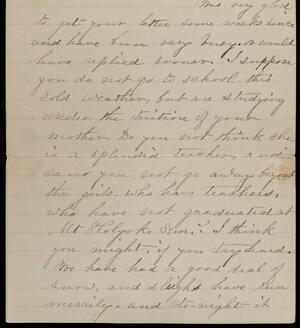 Was very glad
to get your letter some weeks since
and have been very busy, or would
have replied sooner. I suppose
you do not go to school this
cold weather, but are studying
under the tuition of your
mother. Do you not think she
is a splendid teacher, and
can you not go away beyond
the girls, who have teachers,
who have not graduated at
Mt Holyoke Sem.? I think
you might, if you try hard.
We have had a good deal of
snow, and sleighs have run
merrily, and to-night it